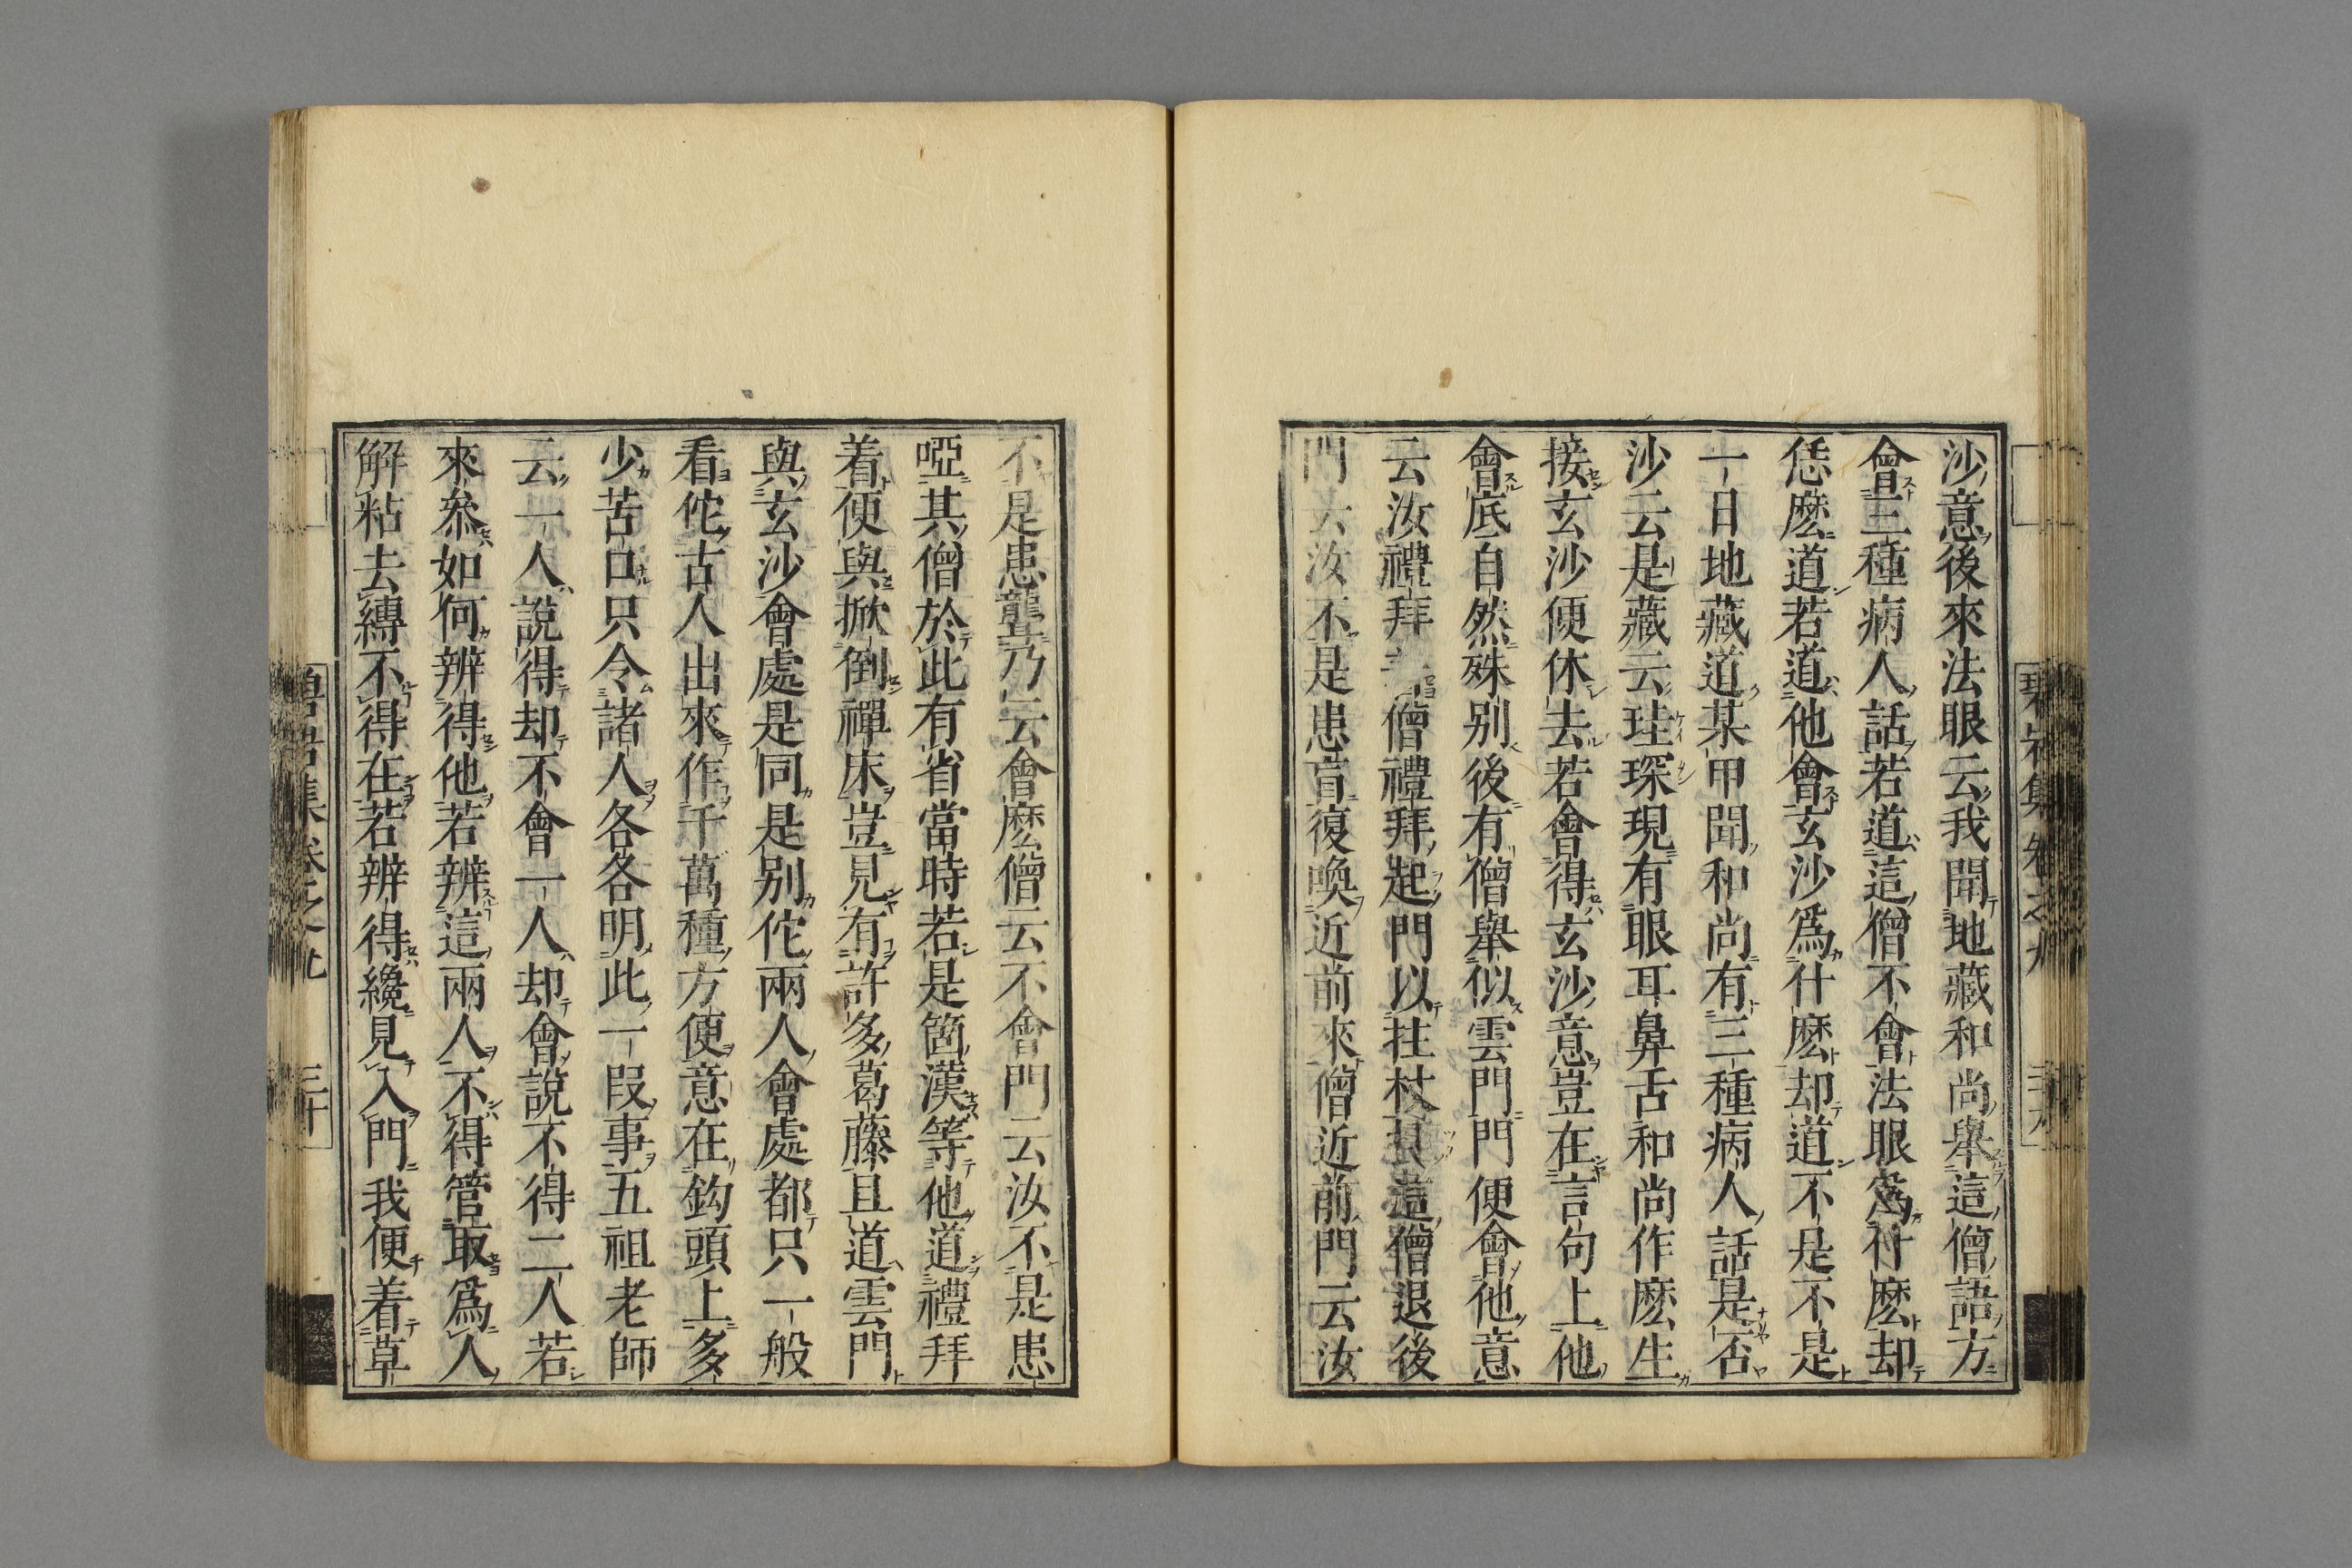 沙意後來法眼云我聞地藏和尚舉這僧語方
會三種病人話若道這僧不會法眼爲什麽却
恁麽道若道他會玄沙爲什麽却道不是不是
一日地藏道某甲聞和尚有三種病人話是否
沙云是藏云珪琛現有眼耳鼻舌和尚作麽生
接玄沙便休去若會得玄沙意豈在言句上他
會底自然殊別後有僧舉似雲門門便會他意
云汝禮拜著僧禮拜起門以拄杖挃這僧退後
門云汝不是患盲復喚近前來僧近前門云汝
不是患聾乃云會麽僧云不會門云汝不是患
啞其僧於此有省當時若是箇漢等他道禮拜
着便與掀倒禪床豈見有許多葛藤且道雲門
與玄沙會處是同是別佗兩人會處都只一般
看佗古人出來作千萬種方便意在鈎頭上多
少苦口只令諸人各各明此一叚事五祖老師
云一人說得却不會一人却會說不得二人若
來叅如何辨得他若辨這兩人不得管取爲人
解粘去縛不得在若辨得纔見入門我便着草
碧岩集卷之九 三十